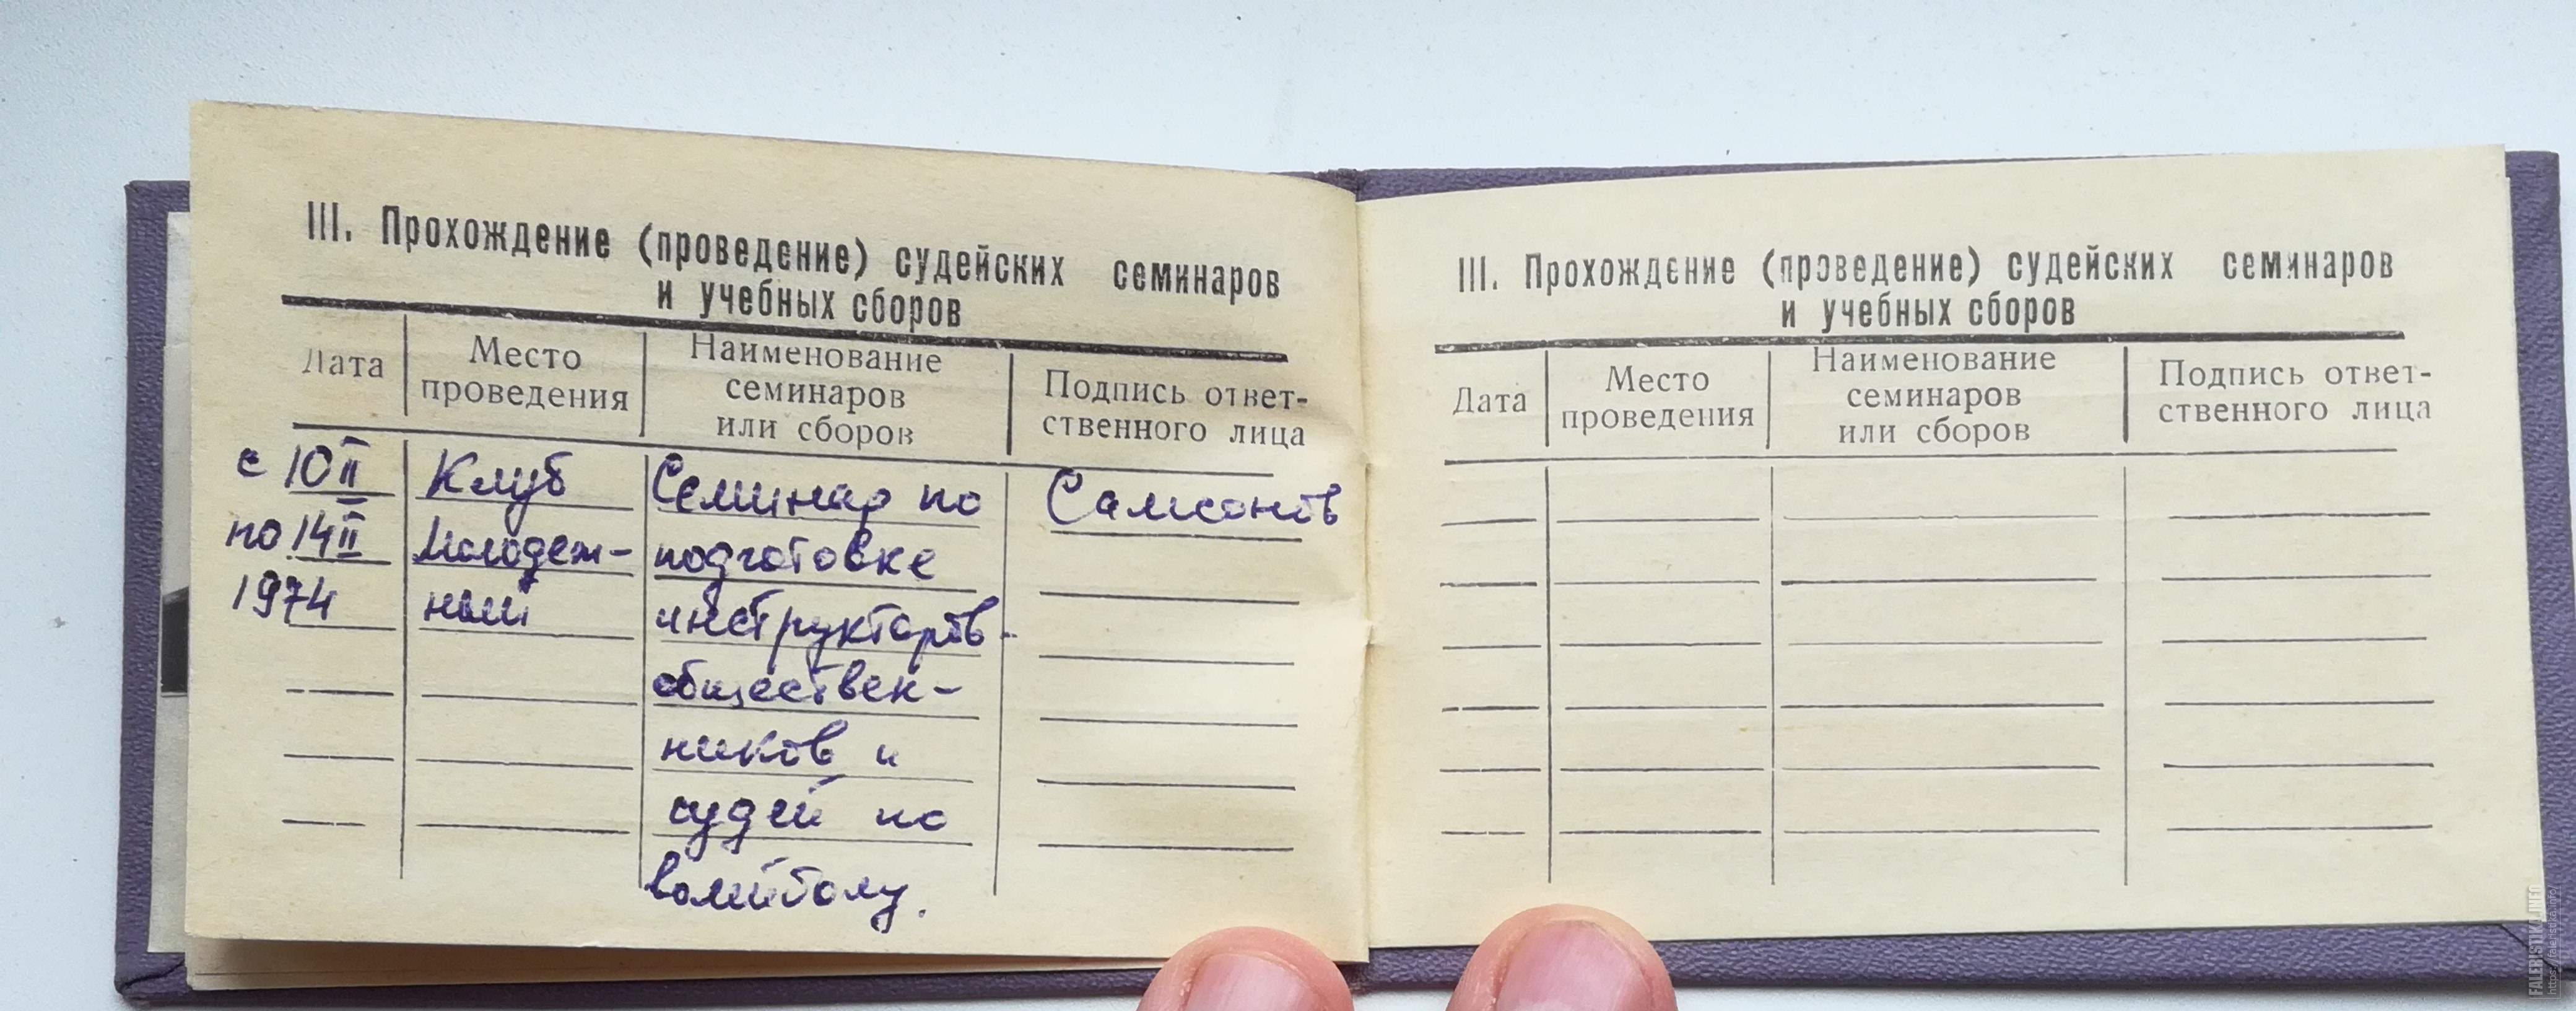 III. Прохождение (проведение) судейских семинаров
и учебных сборов
Дата
Место
проведения
Наименование
семинаров
или сборов
Подпись ответ-
ственного лица
с 10 II
по 14 II
1974
Клуб
Молодеж-
ный
Семинар по
подготовке
инструкторов-
обществен-
ников и
судей по
волейболу.
Самсонов
III. Прохождение (проведение) судейских семинаров
и учебных сборов
Дата
Место
проведения
Наименование
семинаров
или сборов
Подпись ответ-
ственного лица
FALERISTIKA.INFO
https://faleristika.info/